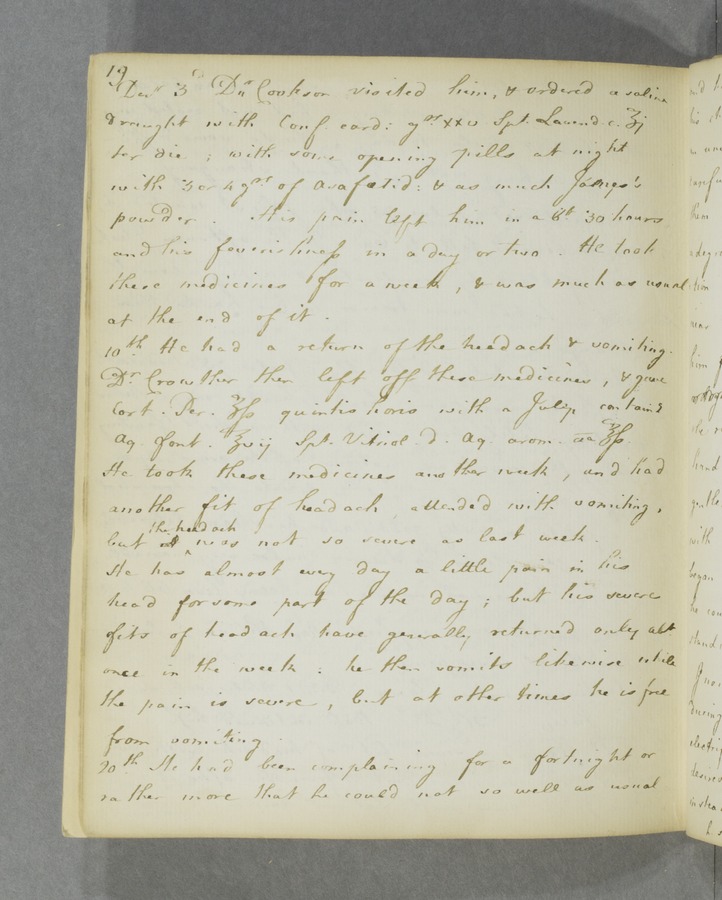 19
Decr 3d Dr Cookson visited him, & ordered a saline
draught with Conf. card: grs xxv Spt. Lavend. c. ʒj
ter die ; with some opening pills at night
with 3 or 4 grs of Asafœtid: & as much James's
powder. His pain left him in abt 30 hours
and his feverishness in a day or two. He took
these medicines for a week, & was much as usual
at the end of it.
10th He had a return of the headach & vomiting.
Dr Crowther then left off these medicines, & gave
Cort. Per. ʒſs quintis horis with a Julip containg
Aq. font. Spt. Vitriol. d. Aq. arom. aa ℥ſs.
He took these medicines another week, and had
another fit of headach, attended with vomiting,
the headach
but was not so severe as last week.
He has almost every day a little pain in his
head for some part of the day ; but his severe
fits of headach have generally returned only abt
once in the week : he then vomits likewise while
the pain is severe, but at other times he is free
from vomiting.
30th He had been complaining for a fortnight or
rather more that he could not so well as usual